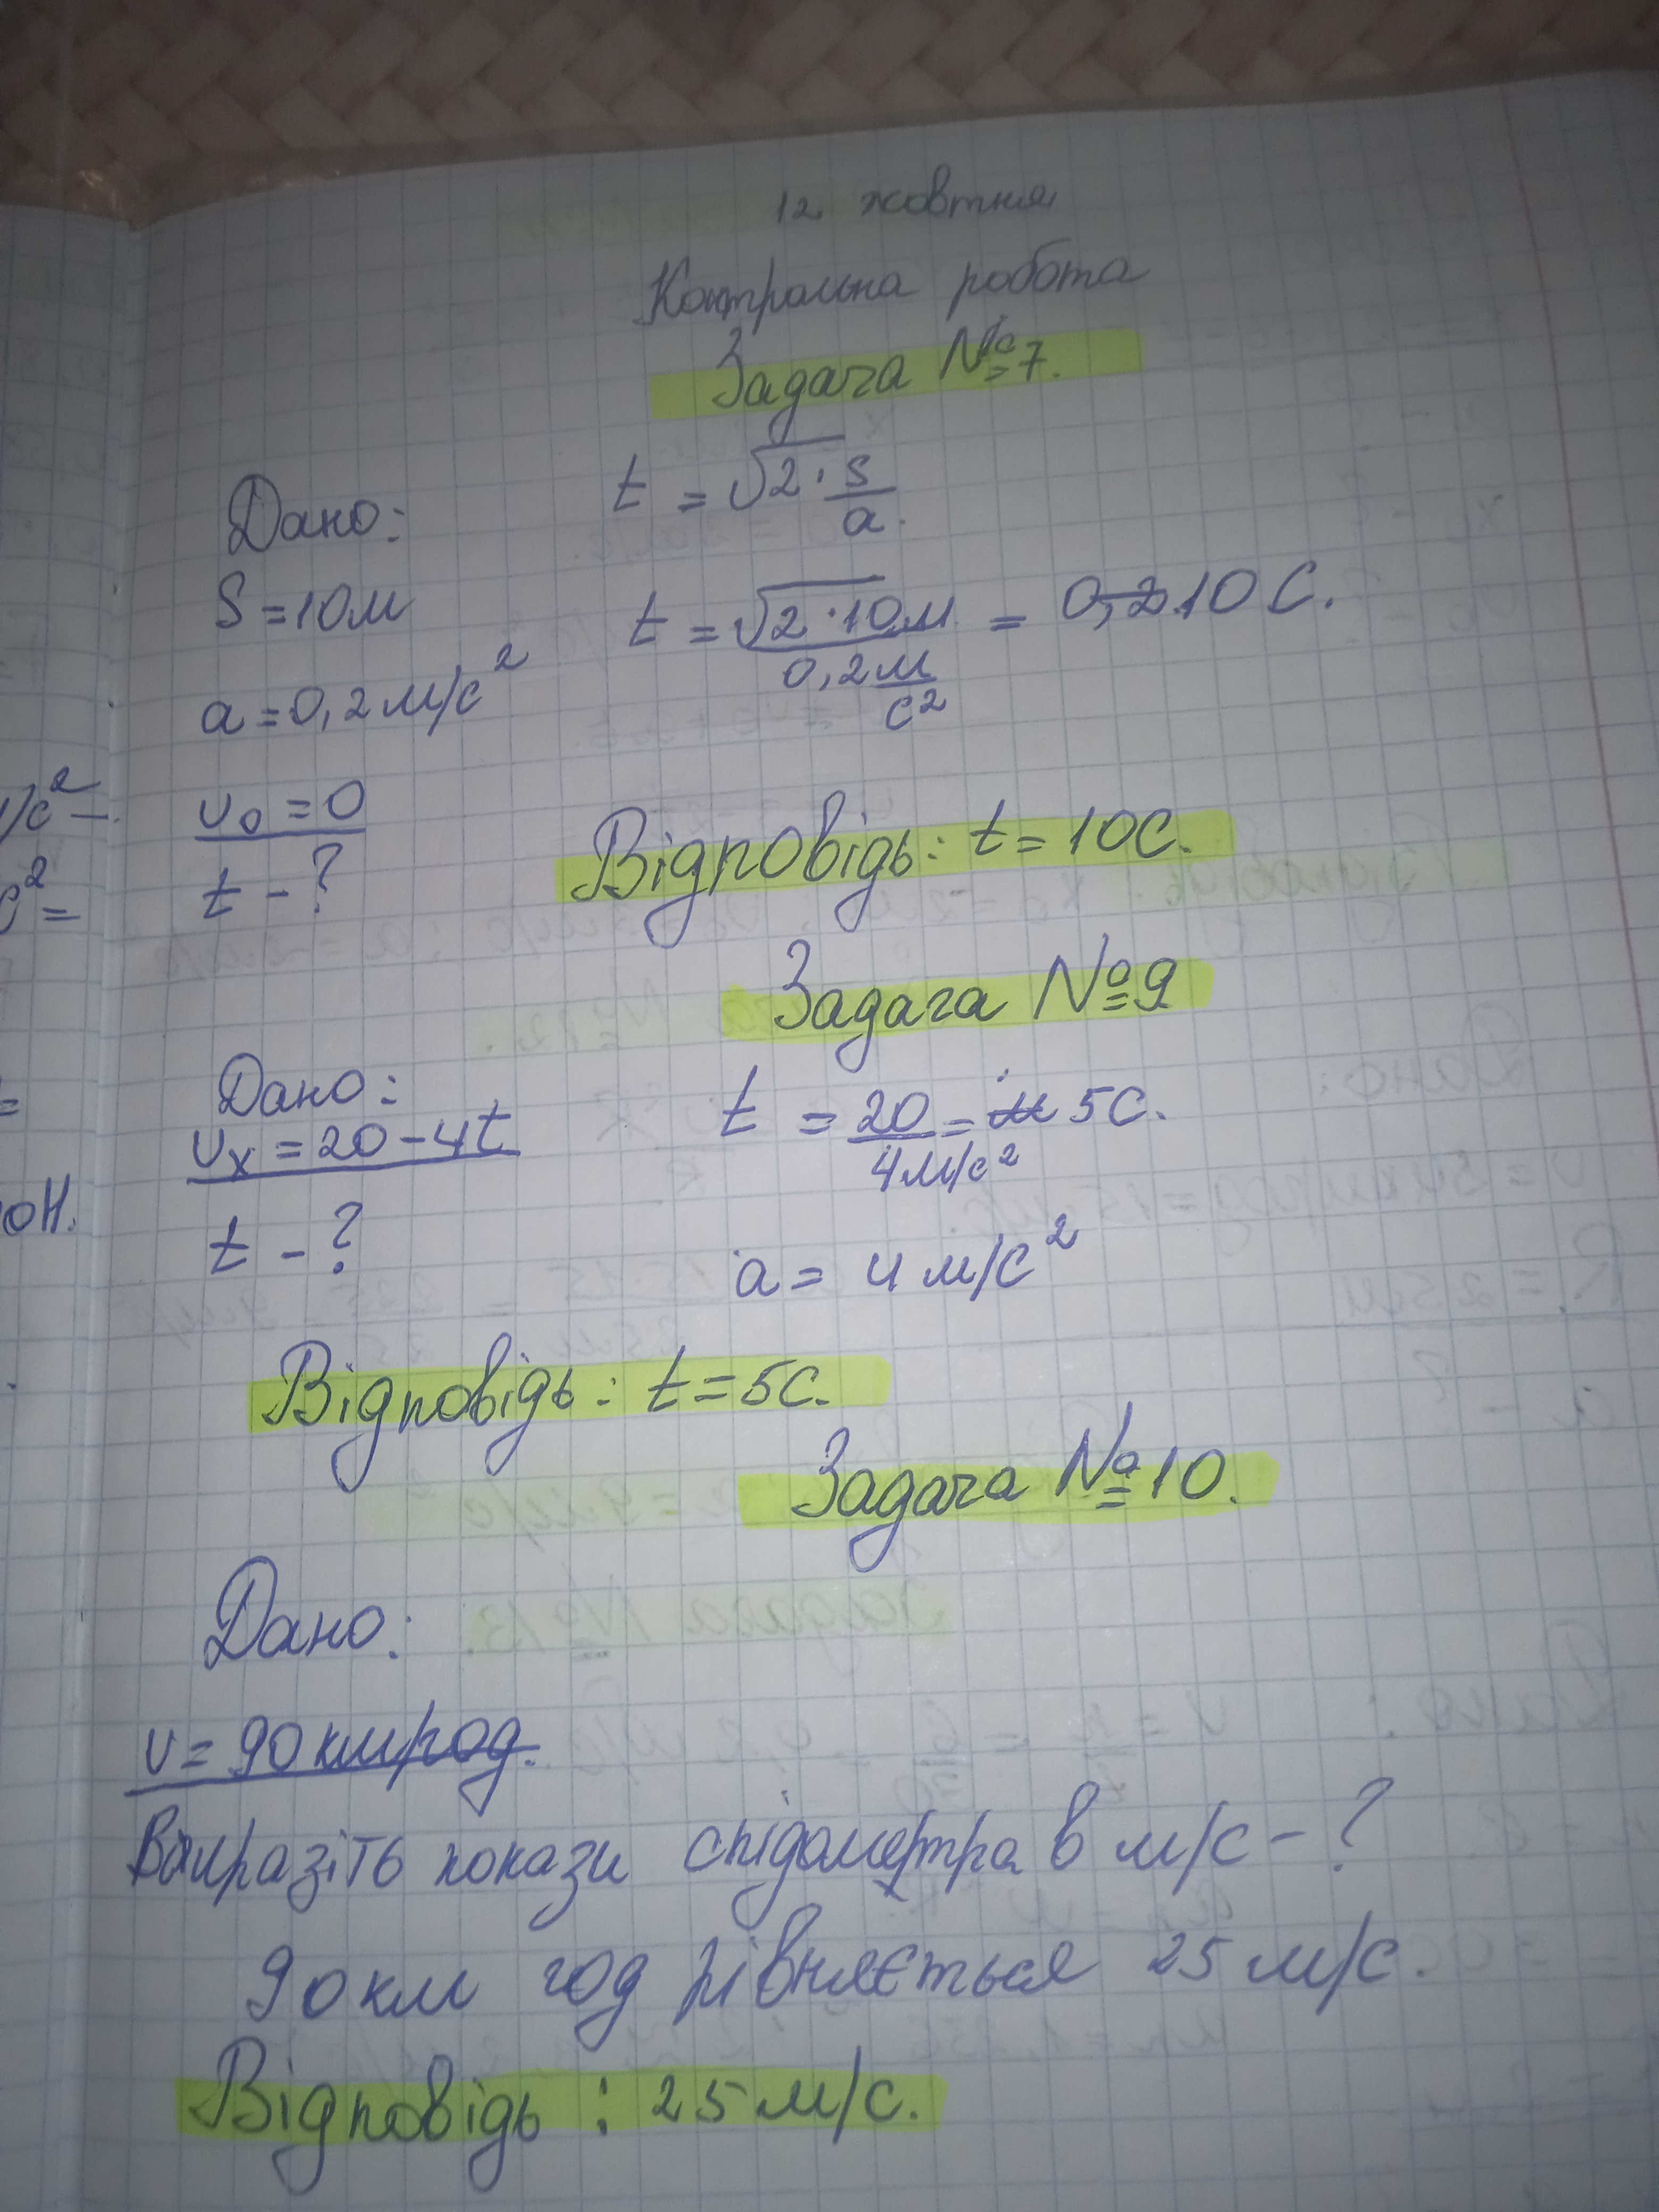 12 жовтня
Контрольна робота
Задача №7.
Дано:
t = √2 · s/a.
S = 10м
t = √2 · 10м / 0,2 м/с² = 10 С.
a = 0,2 м/с²
v₀ = 0
t - ?
Відповідь: t = 10С.
Задача №9
Дано:
vₓ = 20 - 4t
t = 20 / 4м/с² = 5С.
t - ?
a = 4 м/с²
Відповідь: t = 5С.
Задача №10.
Дано:
v = 90 км/год.
Виразіть покази спідометра в м/с - ?
90 км год рівняється 25 м/с.
Відповідь: 25 м/с.